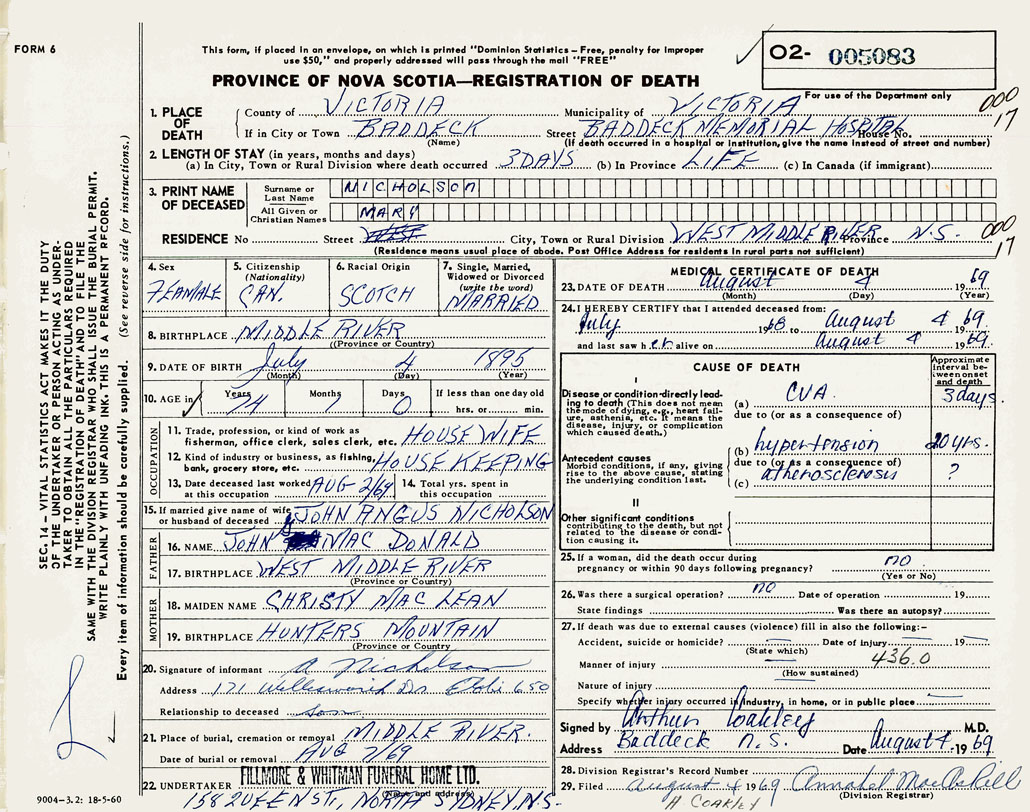 FORM 6
This form, if placed in an envelope, on which is printed "Dominion Statistics – Free, penalty for improper
use $50," and properly addressed will pass through the mail "FREE"
PROVINCE OF NOVA SCOTIA—REGISTRATION OF DEATH
02- 005083
For use of the Department only
000
17
1. PLACE OF DEATH
County of VICTORIA Municipality of VICTORIA
If in City or Town BADDECK Street BADDECK MEMORIAL HOSPITAL House No.
(Name) (If death occurred in a hospital or institution, give the name instead of street and number)
2. LENGTH OF STAY (in years, months and days)
(a) In City, Town or Rural Division where death occurred 3 DAYS (b) In Province LIFE (c) In Canada (if immigrant)
3. PRINT NAME OF DECEASED
Surname or Last Name NICHOLSON
All Given or Christian Names MARY
RESIDENCE No Street City, Town or Rural Division WEST MIDDLE RIVER Province N.S.
000
17
(Residence means usual place of abode. Post Office Address for residents in rural parts not sufficient)
4. Sex FEAMALE
5. Citizenship (Nationality) CAN.
6. Racial Origin SCOTCH
7. Single, Married, Widowed or Divorced (write the word) MARRIED
8. BIRTHPLACE MIDDLE RIVER
(Province or Country)
9. DATE OF BIRTH July 4 1895
(Month) (Day) (Year)
10. AGE in Years 74 Months 1 Days 0 If less than one day old hrs. or min.
OCCUPATION
11. Trade, profession, or kind of work as fisherman, office clerk, sales clerk, etc. HOUSE WIFE
12. Kind of industry or business, as fishing, bank, grocery store, etc. HOUSE KEEPING
13. Date deceased last worked at this occupation AUG 2/69 14. Total yrs. spent in this occupation
15. If married give name of wife or husband of deceased JOHN ANGUS NICHOLSON
FATHER
16. NAME JOHN MAC DONALD
17. BIRTHPLACE WEST MIDDLE RIVER
(Province or Country)
MOTHER
18. MAIDEN NAME CHRISTY MAC LEAN
19. BIRTHPLACE HUNTERS MOUNTAIN
(Province or Country)
20. Signature of informant A Nicholson
Address 171 Dr.
Relationship to deceased son
21. Place of burial, cremation or removal MIDDLE RIVER.
Date of burial or removal AUG 7/69
22. UNDERTAKER FILLMORE & WHITMAN FUNERAL HOME LTD.
(Name and address)
158 QUEEN ST, NORTH SYDNEY, N.S.
MEDICAL CERTIFICATE OF DEATH
23. DATE OF DEATH August 4 1969
(Month) (Day) (Year)
24. I HEREBY CERTIFY that I attended deceased from:
July 1968 to August 4 1969
and last saw her alive on August 4 1969.
CAUSE OF DEATH
Approximate interval between onset and death
I
Disease or condition directly leading to death (This does not mean the mode of dying, e.g., heart failure, asthenia, etc. It means the disease, injury, or complication which caused death.)
(a) CVA 3 days.
due to (or as a consequence of)
(b) hypertension 20 yrs.
Antecedent causes
Morbid conditions, if any, giving rise to the above cause, stating the underlying condition last.
due to (or as a consequence of)
(c) atherosclerosis ?
II
Other significant conditions contributing to the death, but not related to the disease or condition causing it.
25. If a woman, did the death occur during pregnancy or within 90 days following pregnancy? no
(Yes or No)
26. Was there a surgical operation? no Date of operation 19
State findings Was there an autopsy?
27. If death was due to external causes (violence) fill in also the following:-
Accident, suicide or homicide? — Date of injury — 19 —
(State which)
Manner of injury — 436.0
(How sustained)
Nature of injury
Specify whether injury occurred in industry, in home, or in public place —
Signed by Arthur Coakley M.D.
Address Baddeck N.S. Date August 4 1969
28. Division Registrar's Record Number
29. Filed August 4 1969 Annabel MacAskill
(Division Registrar)
A COAKLEY
9004-3.2: 18-5-60
SEC. 14 – VITAL STATISTICS ACT MAKES IT THE DUTY
OF THE UNDERTAKER OR PERSON ACTING AS UNDER-
TAKER TO OBTAIN ALL THE PARTICULARS REQUIRED
IN THE "REGISTRATION OF DEATH" AND TO FILE THE
SAME WITH THE DIVISION REGISTRAR WHO SHALL ISSUE THE BURIAL PERMIT.
WRITE PLAINLY WITH UNFADING INK. THIS IS A PERMANENT RECORD.
Every item of information should be carefully supplied. (See reverse side for instructions.)